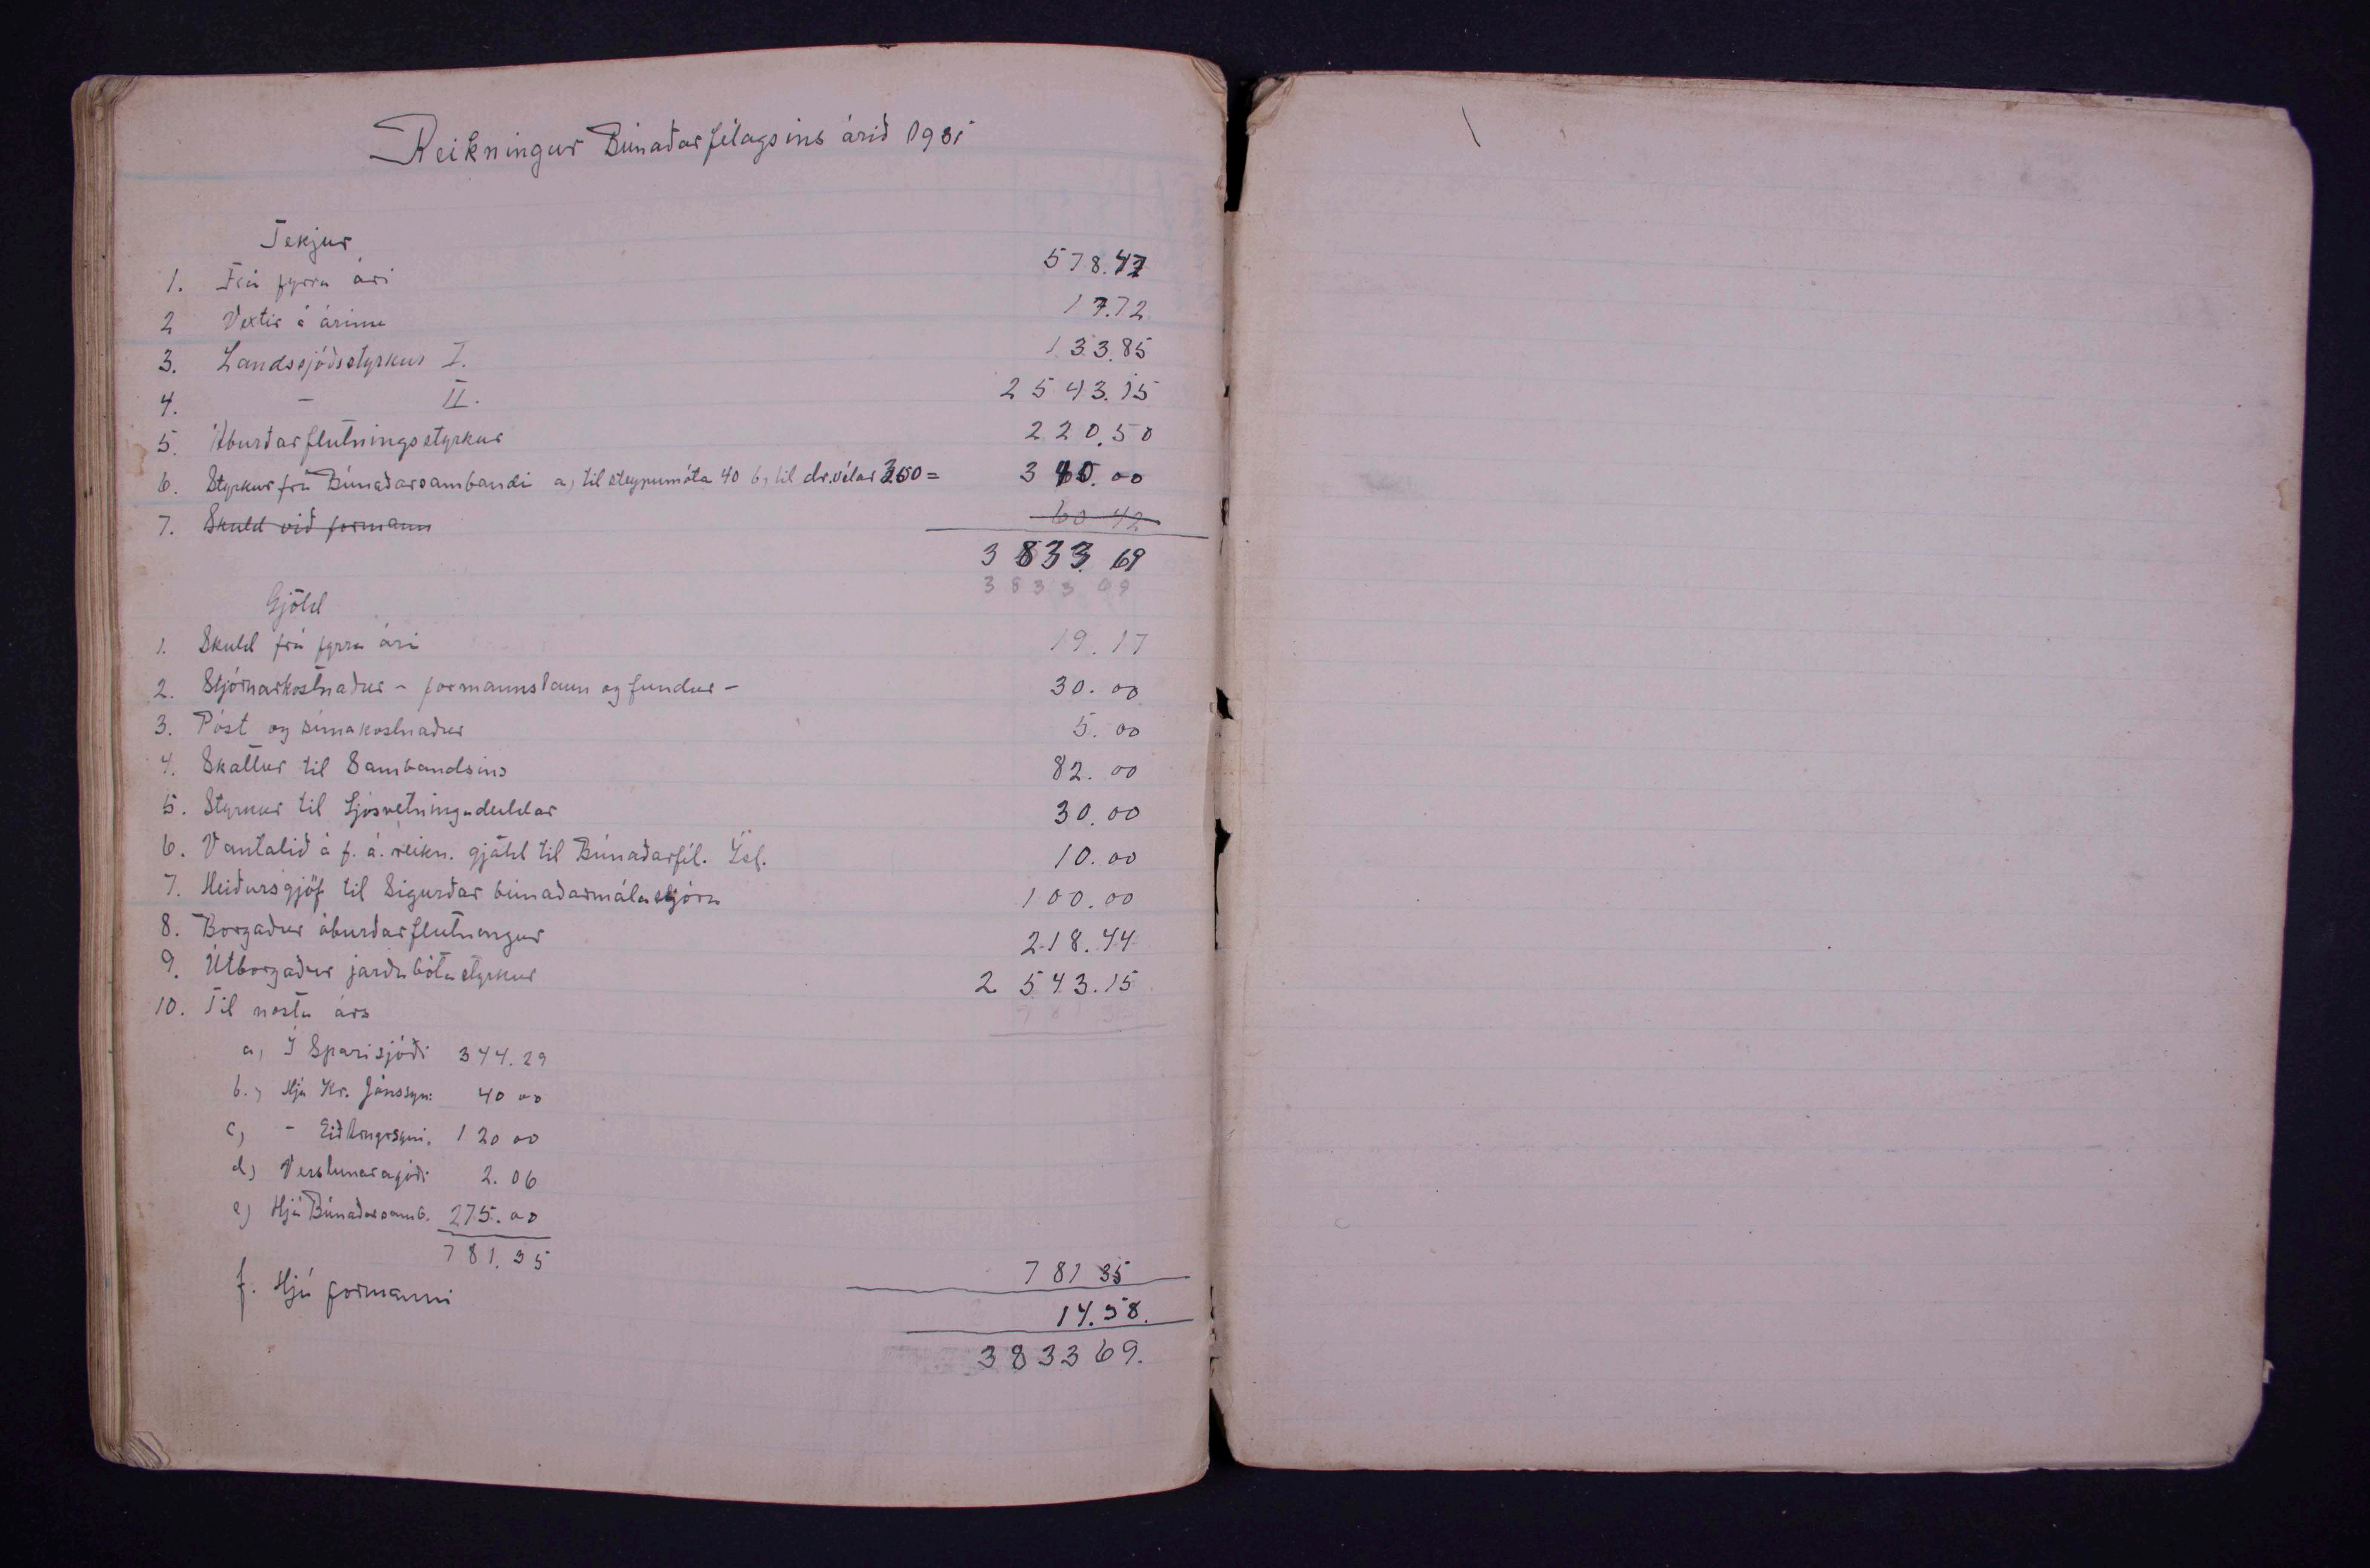 Reikningur Búnaðarfélagsins árið 1931
Tekjur
1. Frá fyrra ári 578.47
2 Vextir á árinu 17.72
3. Landssjóðsstyrkur I. 133.85
4. - II. 2543.15
5. Áburðarflutningsstyrkur 220.50
6. Styrkur frá Búnaðarsambandi a, til steypumóta 40 b, til dr.vélar 300 = 340.00
7. Skuld við formann 60 42
3833.69
3833 69
Gjöld
1. Skuld frá fyrra ári 19.17
2. Stjórnarkostnaður - formannslaun og fundur - 30.00
3. Póst og símakostnaður 5.00
4. Skattur til Sambandsins 82.00
5. Styrkur til Ljósvetningadeildar 30.00
6. Vantalið á f. á. reikn. gjöld til Búnaðarfél. Ísl. 10.00
7. Heiðursgjöf til Sigurðar búnaðarmálastjóra 100.00
8. Borgaður áburðarflutningur 218.44
9. Útborgaður jarðabótastyrkur 2543.15
10. Til næsta árs
a, Í Sparisjóði 344.29
b., Hjá Kr. Jónssyni 40 00
c, - Eið Arngrsyni. 120 00
d, Verslunarsjóði 2.06
e) Hjá Búnaðarsamb. 275.00
781.35
781 35
f. Hjá formanni 14.58.
3833 69.